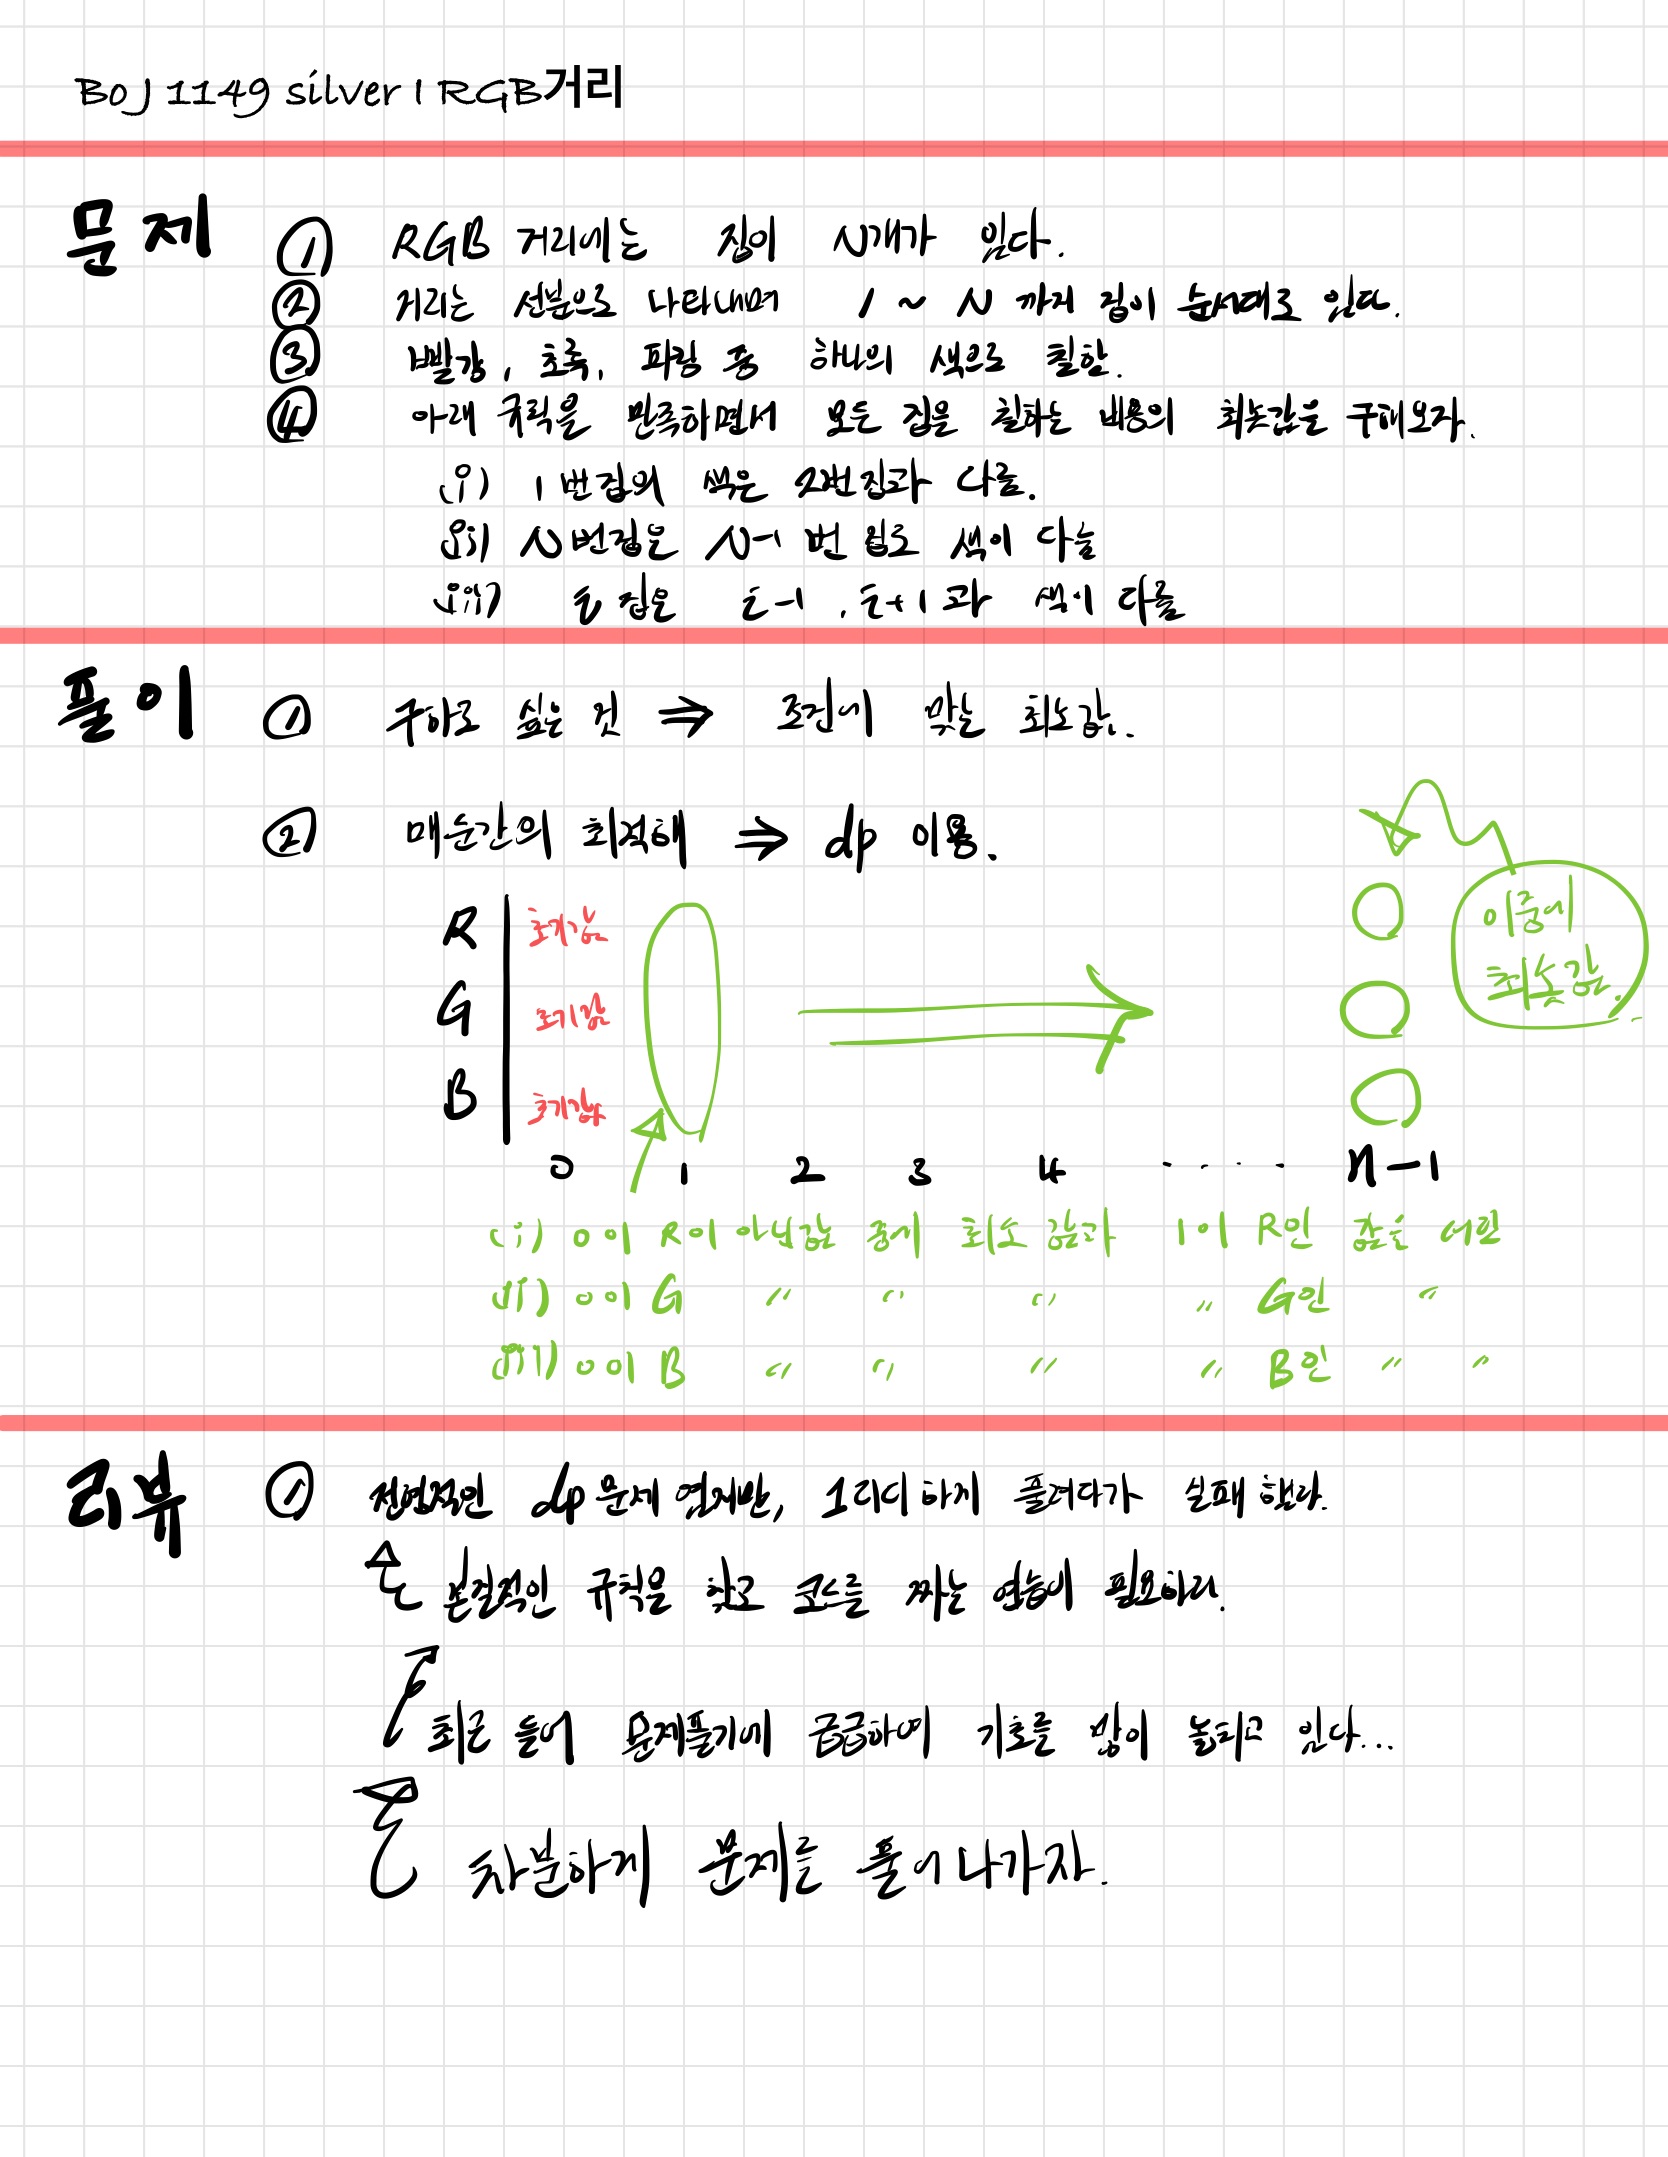 BOJ 1149 silver 1 RGB거리
문제
① RGB 거리에는 집이 N개가 있다.
② 거리는 선분으로 나타내며 1 ~ N 까지 집이 순서대로 있다.
③ 빨강, 초록, 파랑 중 하나의 색으로 칠함.
④ 아래 규칙을 만족하면서 모든 집을 칠하는 비용의 최솟값을 구해보자.
i) 1번집의 색은 2번집과 다름.
ii) N번집은 N-1 번 집과 색이 다름
iii) i 집은 i-1, i+1과 색이 다름
풀이
① 구하고 싶은 것 ⇒ 조건에 맞는 최소값.
② 매순간의 최적해 ⇒ dp 이용.
R 초기값
G 초기값
B 초기값
이중에
최솟값.
0 1 2 3 4 ..... n-1
(i) 0이 R이 아닌값 중에 최소 값과 1이 R인 값을 더한
(ii) 0이 G " " " " G인 "
(iii) 0이 B " " " " B인 " "
리뷰
① 전형적인 dp 문제 였지만, 그리디 하게 풀려다가 실패 했다.
본질적인 규칙을 찾고 코드를 짜는 연습이 필요하다.
최근 들어 문제풀기에 급급하여 기초를 많이 놓치고 있다...
차분하게 문제를 풀어나가자.